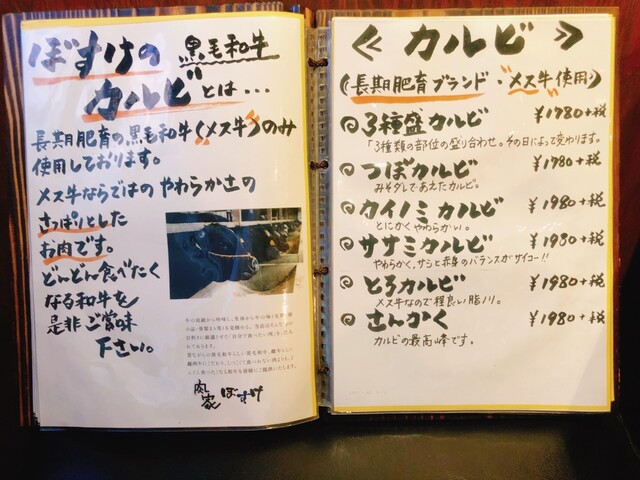 ぼすけの 黒毛和牛
カルビとは…
長期肥育の黒毛和牛(メス牛)のみ
使用しております。
メス牛ならではのやわらかさの
さっぱりとした
お肉です。
どんどん食べたく
なる和牛を
是非ご賞味
下さい。
肉家 ぼすけ
≪ カルビ ≫
(長期肥育ブランド・メス牛使用)
3種盛カルビ ¥1780+税
「3種類の部位の盛り合わせ。その日によって変わります。
つぼカルビ ¥1780+税
みそダレであえたカルビ。
カイノミカルビ ¥1980+税
とにかくやわらかい。
ササミカルビ ¥1980+税
やわらかく、サシと赤身のバランスがサイコー!!
とろカルビ ¥1980+税
メス牛なので程良い脂ノリ。
さんかく ¥1980+税
カルビの最高峰です。